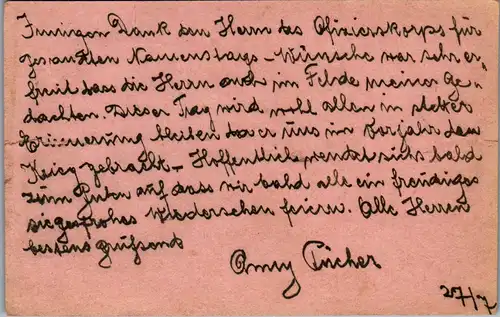 Innigen Dank den Herrn des Offizierskorps für
gesandten Namenstags-Wünsche war sehr er-
freit dass die Herrn auch im Felde meiner Ge-
dachten. Dieser Tag wird wohl allen in steter
Erinnerung bleiben da er uns im Vorjahr den
Krieg gebracht – Hoffentlich wendet sich's bald
zum Guten auf dass wir bald alle ein freudiges
siegesfrohes Wiedersehen feiern. Alle Herren
bestens grüßend
Fischer
27/7